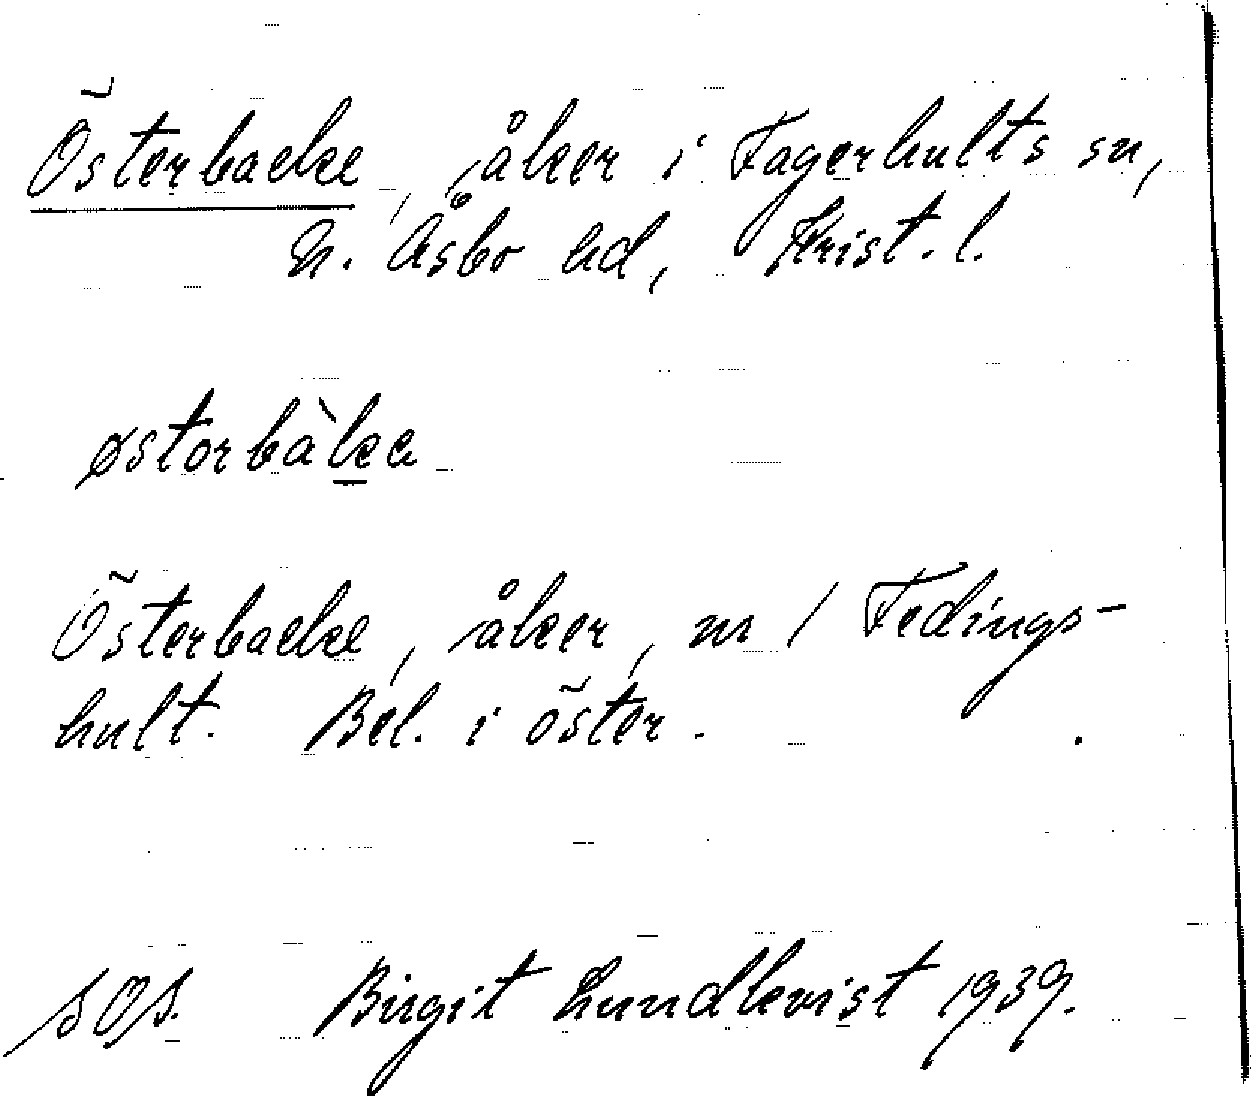 Österbacke, åker i Fagerhults sn,
N. Åsbo hd, Krist. l.
østorbàka
Österbacke, åker, nr 1 Fedings-
hult. Bel. i öster.
SOS. Birgit Lundkvist 1939.